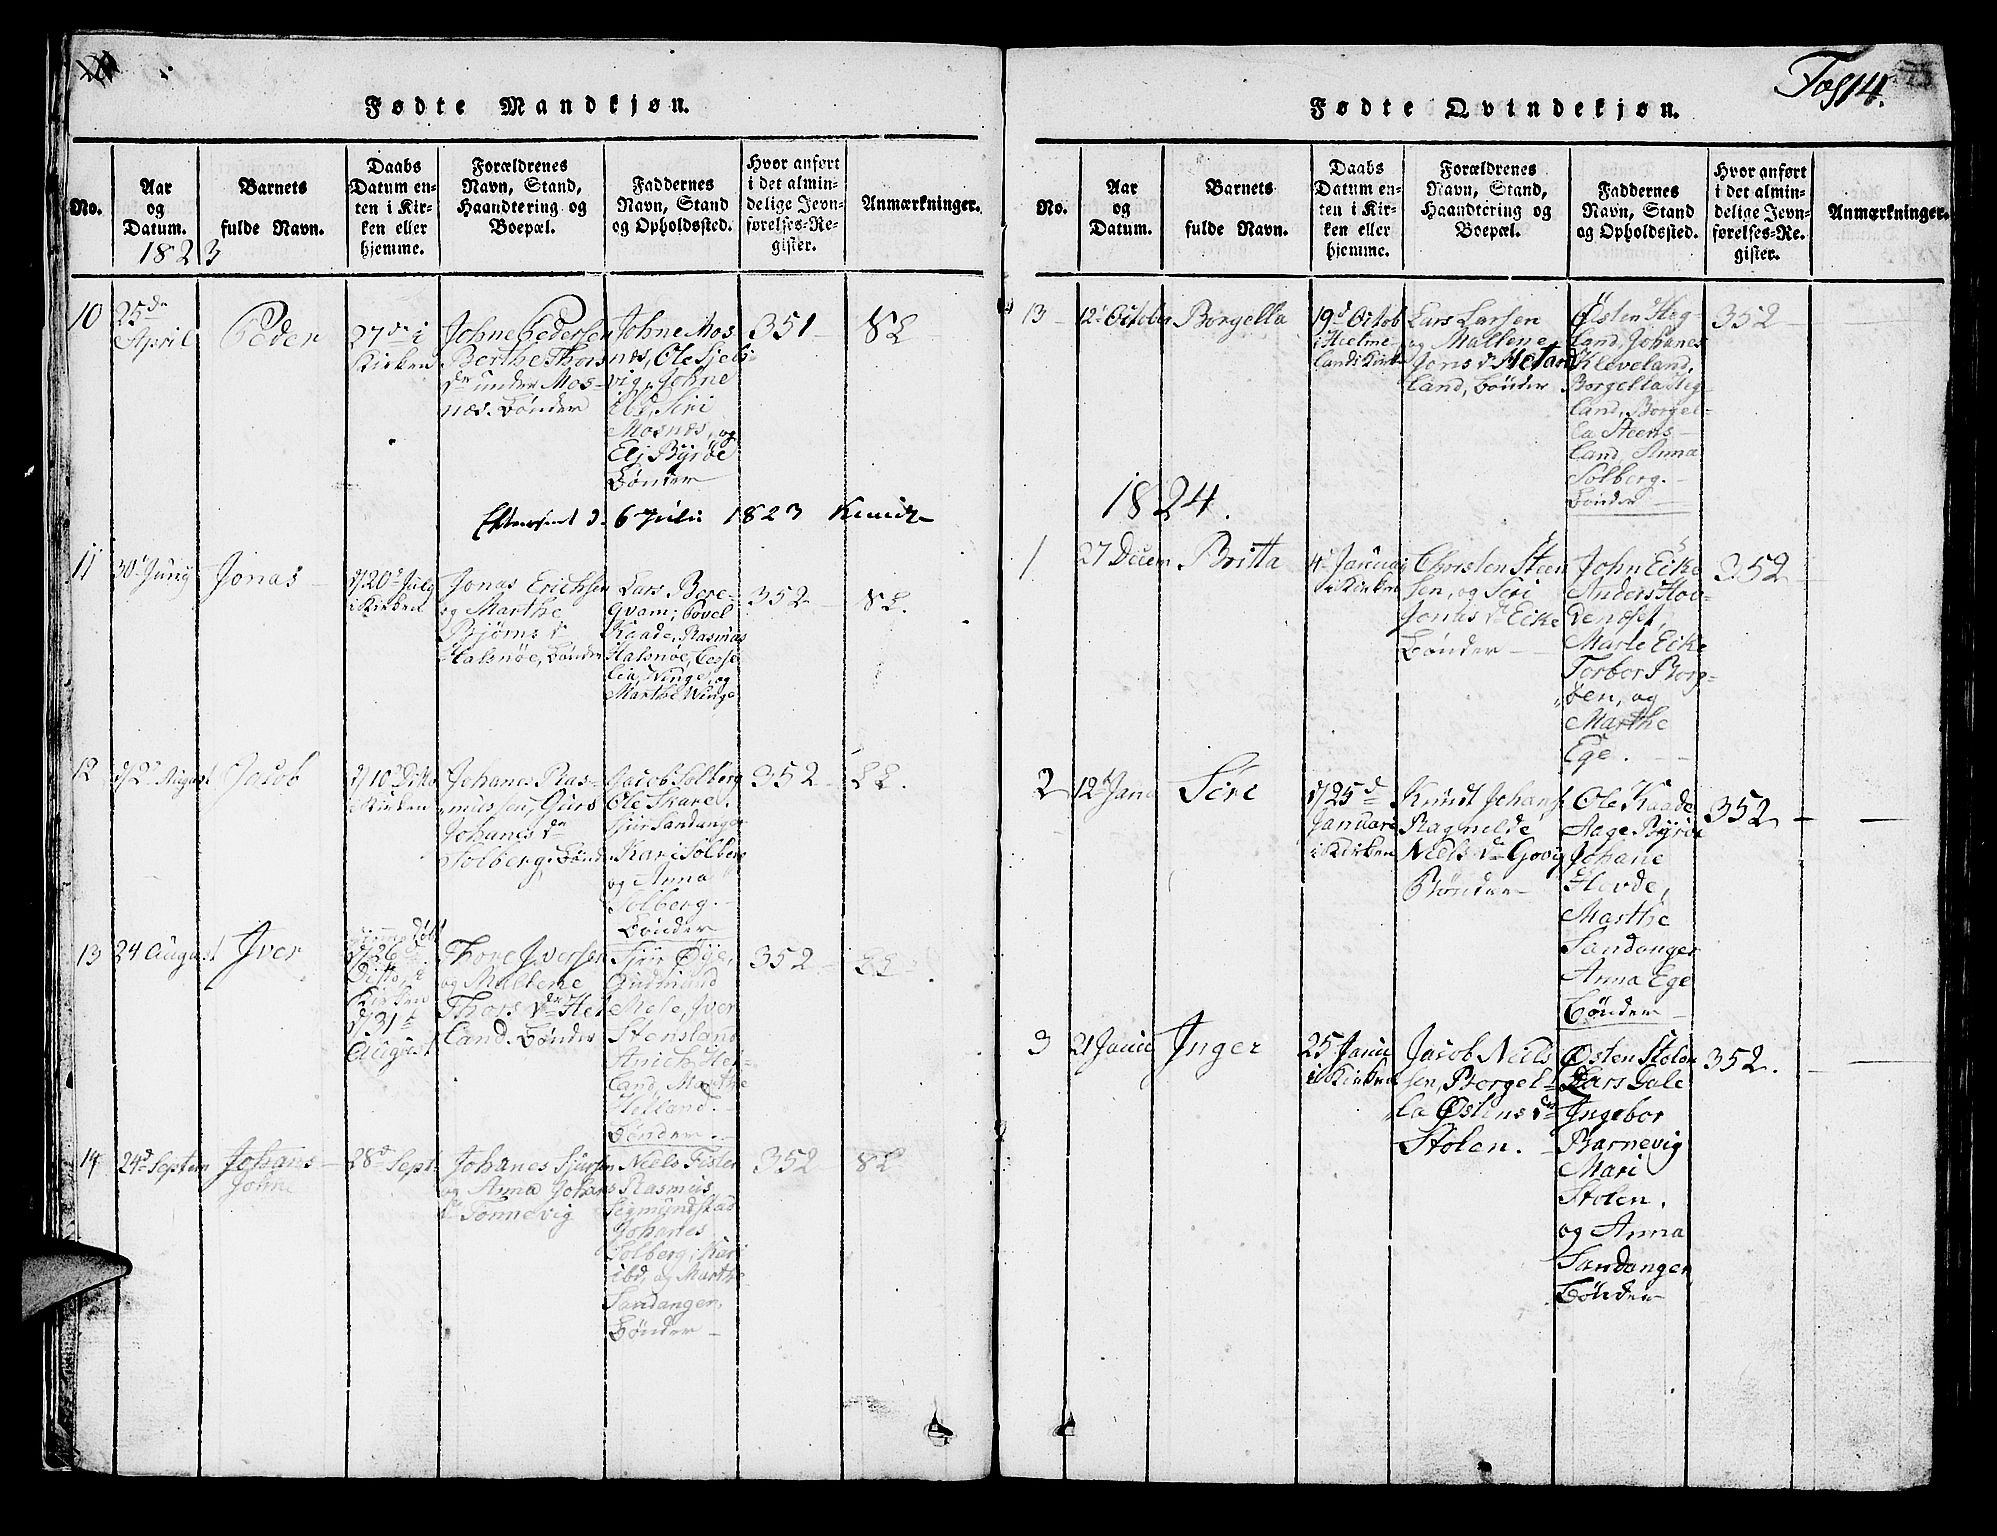 Fødte Mandkjøn.
No.
Aar
og
Datum.
1823
Barnets
fulde Navn.
Daabs
Datum en-
ten i Kir-
ken eller
hjemme.
Forældrenes
Navn, Stand,
Haandtering og
Boepæl.
Faddernes
Navn, Stand
og Opholdssted.
Hvor anført
i det almin-
delige Jevn-
førelses-Re-
gister.
Anmærkninger.
10
25de
April
Peder
27de i
Kirken
Johne Pedersen
Berthe Thors
dr under Mos-
næs. Bønder
Johne Mos
næs, Ole
vig, Johne
ibd, Siri
Mosnæs, og
Eli Byrøe
Bønder
351
d. 6 Julii 1823
11
30 Juny
Jonas
d/20d July
i Kirken
Jonas Erichsen
og Marthe
Bjørns dr
Halsnøe, Bønder
Lars Berge-
Qvam;
Kaade, Rasmus
Halsnøe,
Winge, og
Marthe Winge
352
12
d/2d August
Jacob
d/10d Dito
i Kirken
Johanes Ras-
mussen, Gurs
Johanes dr
Solberg. Bønd
Jacob Solberg
Ole Skare.
Siur Sandanger
Kari Solberg
og Anna
Solberg.
Bønder
352
13
24 August
Iver
d/26
Ditto, i
Kirken
d/31t
August
Thore Iversen
og Mallene
Thors dr Hel
land. Bønder
Siur Øye,
Gudmund
Mele, Iver
Stensland
Anich Hel-
land, Marthe
Helland.
Bønder.
352
14
24d Septem
Johans
John
28d Sept
Johanes Sjursen
og Anna Johans
dr Tønnevig
Neels Fister
Rasmus
Segmundstad
Johanes
Solberg, Kari
ibd, og Marthe
Sandanger,
Bønder
352
Fødte Qvindekjøn.
Fos 14.
No.
Aar
og
Datum.
Barnets
fulde Navn.
Daabs
Datum en-
ten i Kir-
ken eller
hjemme.
Forældrenes
Navn, Stand,
Haandtering og
Boepæl.
Faddernes
Navn, Stand
og Opholdssted.
Hvor anført
i det almin-
delige Jevn-
førelses-Re-
gister.
Anmærkninger.
13
12t October
Borgella
19d Octob
i Heelme
lands Kirke
Lars Larsen
og Mallene
Jons dr Hetan
land, Bønder
Østen Heg-
land, Johanes
Kleveland,
Borgella Heg-
land, Borgel-
la Steens-
land, Anna
Solberg.
Bønder
352
1824.
1
27 Decem
Britta
4d Januari
i Kirken
Christen Steen
sen, og Siri
Jonas dr Eike
Bønder
John Eike
Anders Hov-
denæset,
Marte Eike
Torbor Borg-
øen, og
Marthe
Ege.
352
2
12t Janu
Siri
d/25d
Januari
i Kirken
Knudt Johans
Ragnilde
Neels dr Govig
Bønder
Ole Kaade
Aage Byrøe
Johane
Hevde,
Marthe
Sandanger
Anna Ege
Bønder
352
3
21 Janu
Inger
25 Janu
i Kirken
Jacob Neels
sen, Borgel-
la Østens dr
Stolen.
Østen Stolen
Lars Gale
Ingebor
Barnevig
Mari
Stolen.
og Anna
Sandanger
Bønder
352.